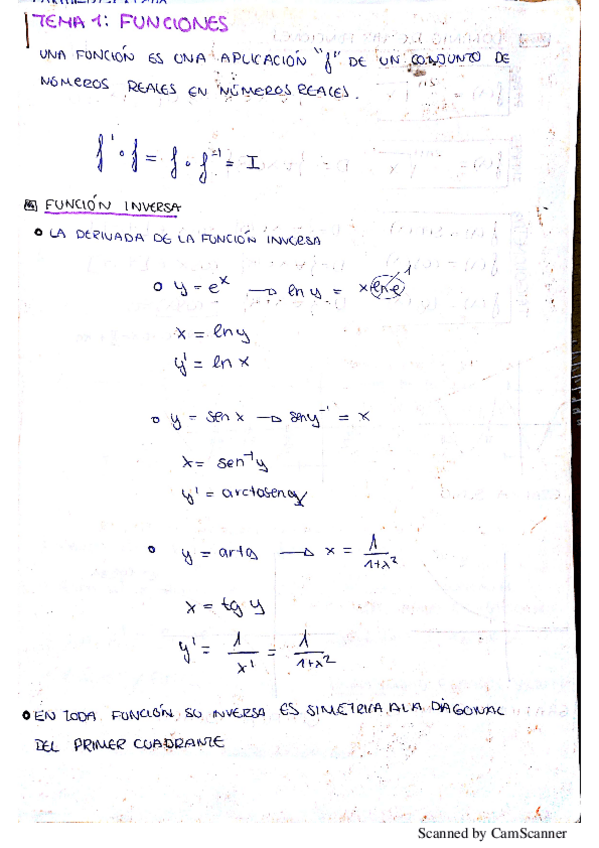 TEMA 1: FUNCIONES
UNA FUNCIÓN ES UNA APLICACIÓN "f" DE UN CONJUNTO DE
NÚMEROS REALES EN NÚMEROS REALES.
f⁻¹ ∘ f = f ∘ f⁻¹ = I
FUNCIÓN INVERSA
• LA DERIVADA DE LA FUNCIÓN INVERSA
o y = eˣ → ln y = x ln e 1
x = ln y
y' = ln x
o y = sen x → sen y⁻¹ = x
x = sen⁻¹ y
y' = arctoseny
o y = artg → x = 1/(1+x²)
x = tg y
y' = 1/x' = 1/(1+x²)
• EN TODA FUNCIÓN SU INVERSA ES SIMETRICA A LA DIAGONAL
DEL PRIMER CUADRANTE
Scanned by CamScanner